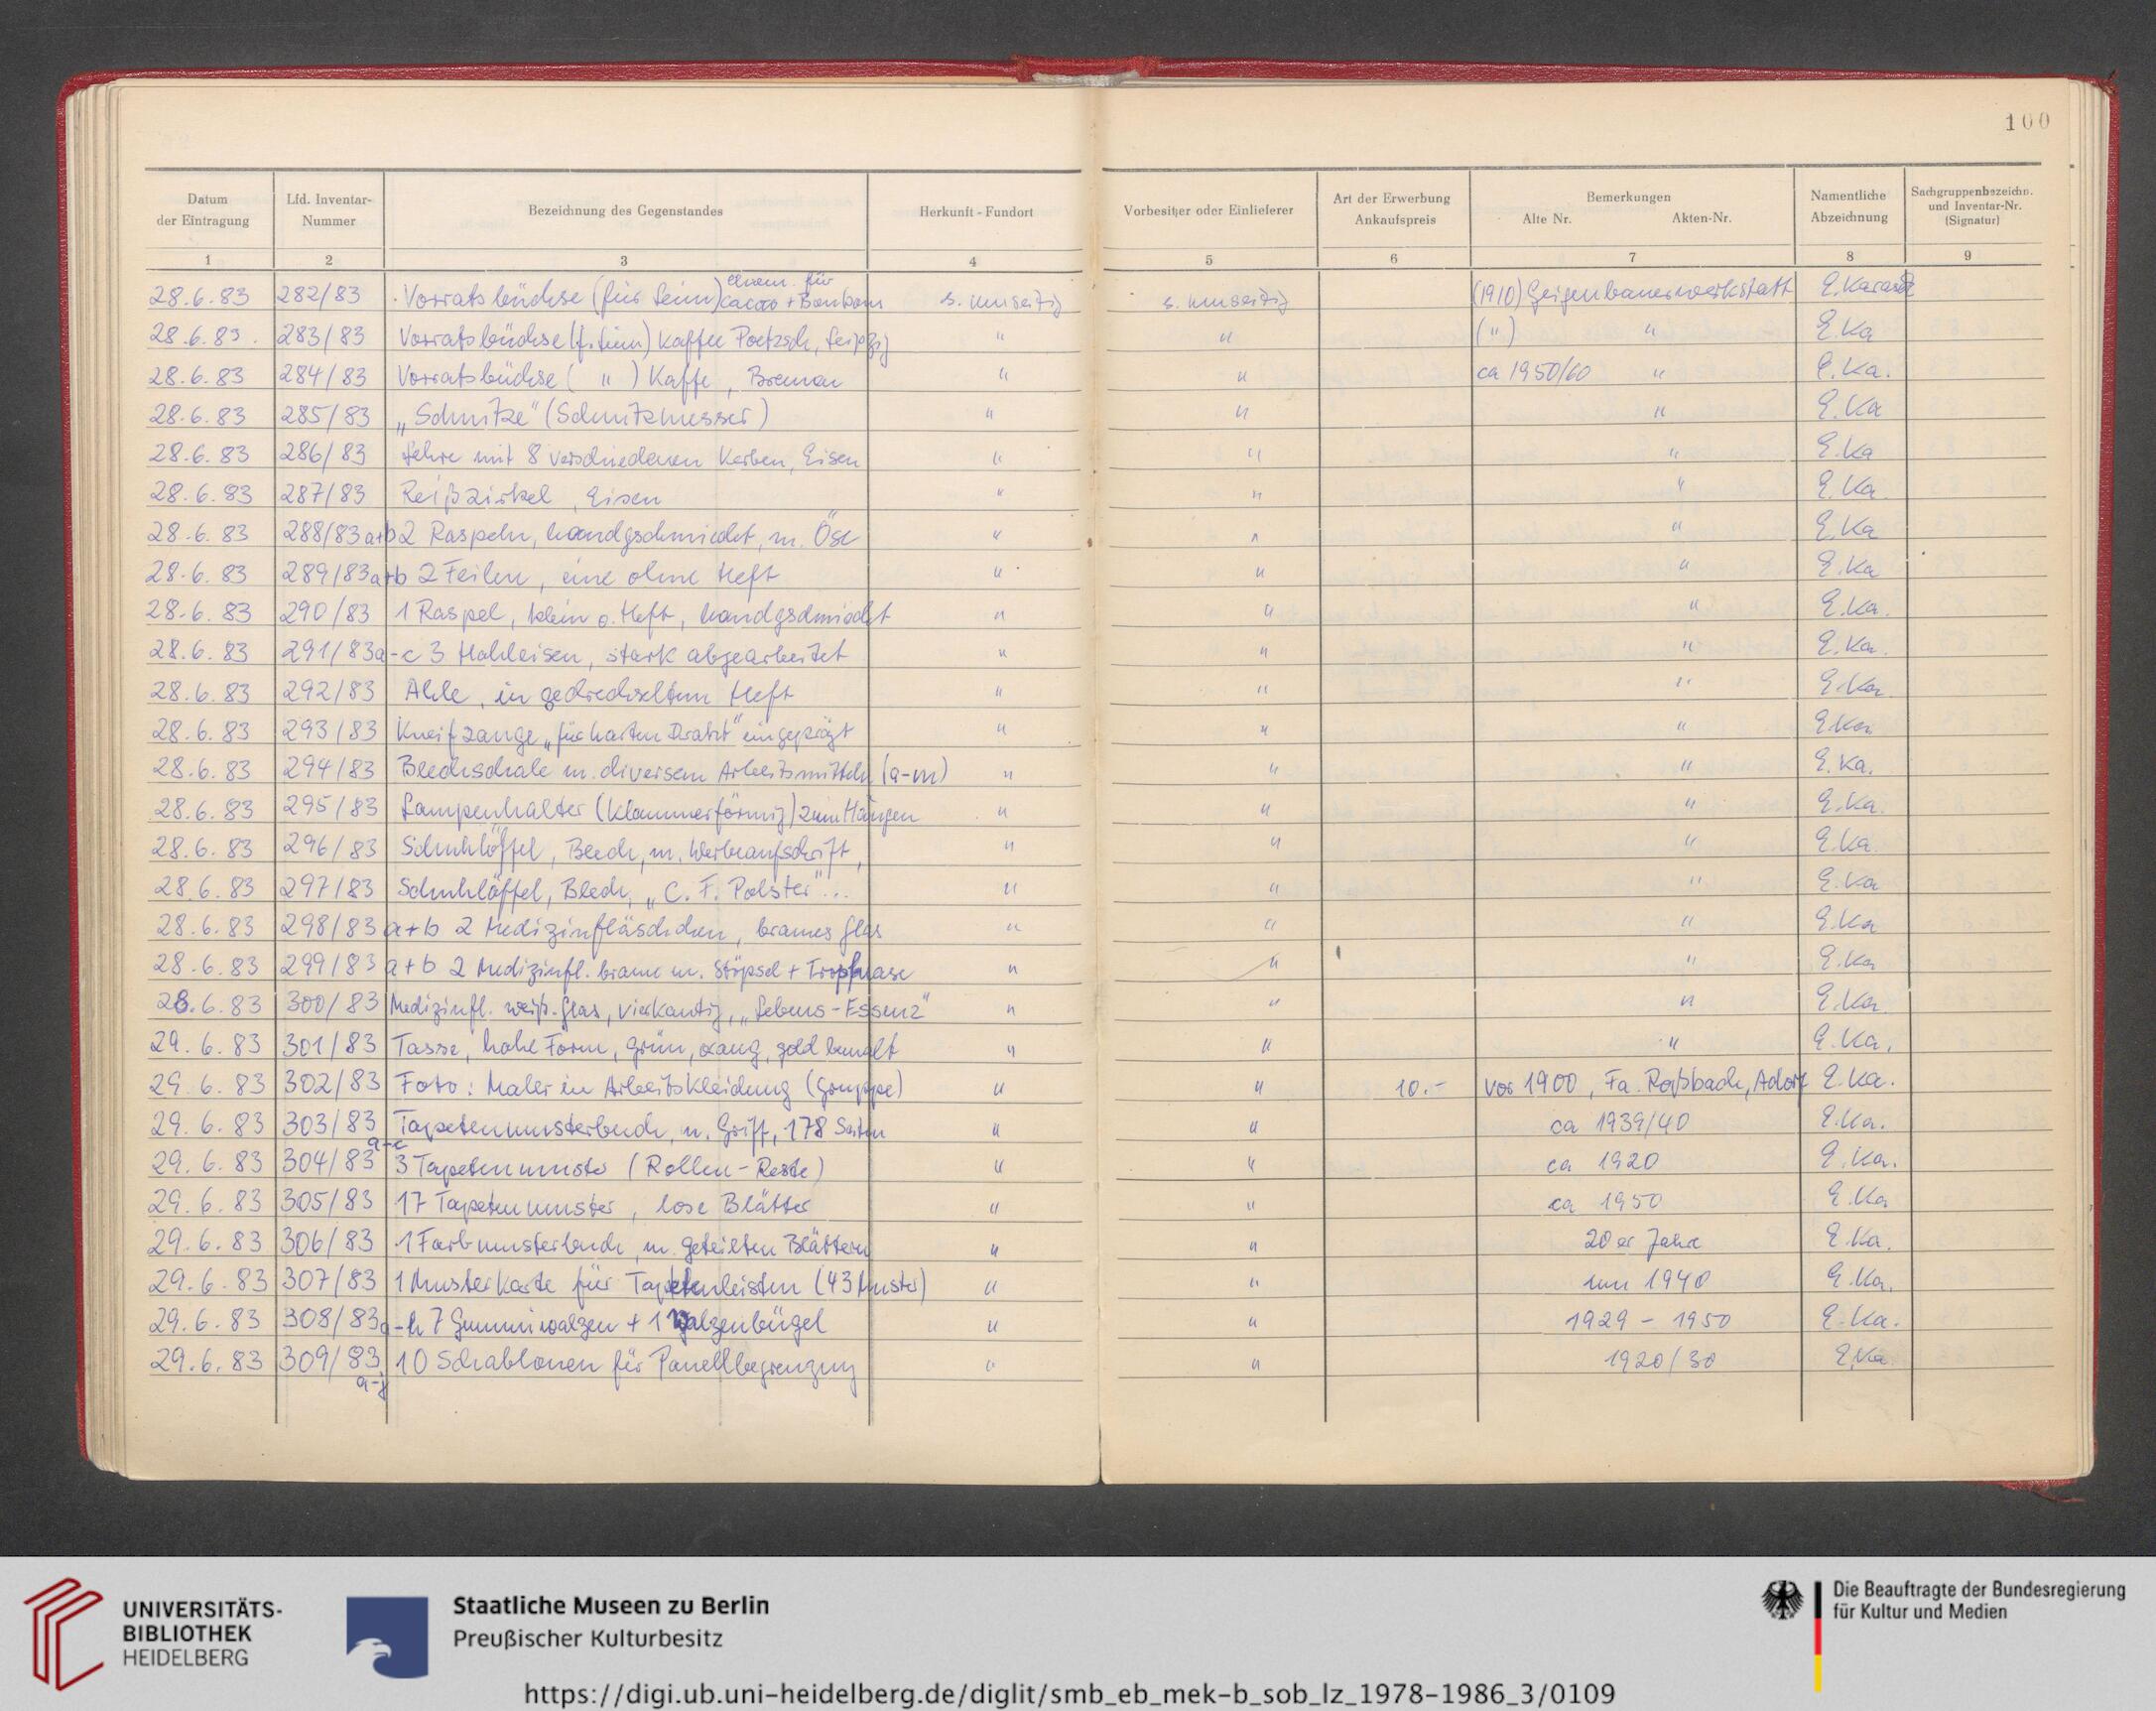 100
Datum der Eintragung | Lfd. Inventar-Nummer | Bezeichnung des Gegenstandes | Herkunft - Fundort | Vorbesitzer oder Einlieferer | Art der Erwerbung Ankaufspreis | Bemerkungen Alte Nr. Akten-Nr. | Namentliche Abzeichnung | Sachgruppenbezeichn. und Inventar-Nr. (Signatur)
1 | 2 | 3 | 4 | 5 | 6 | 7 | 8 | 9
28.6.83 | 282/83 | Vorratsbüchse (für Leim) ehem. für Cacao + Bonbons | s. umseitig | s. umseitig | (1910) Geigenbauerwerkstatt | E. Karasek
28.6.83. | 283/83 | Vorratsbüchse (f. Leim) Kaffee Poetzsch, Leipzig | " | " | (") " | E. Ka
28.6.83 | 284/83 | Vorratsbüchse ( " ) Kaffe, Bremen | " | " | ca 1950/60 " | E. Ka.
28.6.83 | 285/83 | „Schnitze" (Schnitzmesser) | " | " | " | E. Ka
28.6.83 | 286/83 | Lehre mit 8 verschiedenen Kerben, Eisen | " | " | " | E. Ka
28.6.83 | 287/83 | Reißzirkel, Eisen | " | " | " | E. Ka.
28.6.83 | 288/83 a+b | 2 Raspeln, handgschmiedet, m. Öse | " | " | " | E. Ka
28.6.83 | 289/83 a+b | 2 Feilen, eine ohne Heft | " | " | " | E. Ka
28.6.83 | 290/83 | 1 Raspel, klein o. Heft, handgschmiedet | " | " | " | E. Ka.
28.6.83 | 291/83 a-c | 3 Hohleisen, stark abgearbeitet | " | " | " | E. Ka.
28.6.83 | 292/83 | Ahle, in gedrechseltem Heft | " | " | " | E. Ka.
28.6.83 | 293/83 | Kneifzange „für harten Draht" eingeprägt | " | " | " | E. Ka
28.6.83 | 294/83 | Blechschale m. diversen Arbeitsmitteln (a-m) | " | " | " | E. Ka.
28.6.83 | 295/83 | Lampenhalter (klammerförmig) zum Hängen | " | " | " | E. Ka.
28.6.83 | 296/83 | Schuhlöffel, Blech, m. Werbeaufschrift, | " | " | " | E. Ka.
28.6.83 | 297/83 | Schuhlöffel, Blech, „C. F. Polster"... | " | " | " | E. Ka
28.6.83 | 298/83 | a+b 2 Medizinfläschchen, braunes Glas | " | " | " | E. Ka
28.6.83 | 299/83 | a+b 2 Medizinfl. braune m. Stöpsel + Tropfnase | " | " | " | E. Ka
28.6.83 | 300/83 | Medizinfl. weiß. Glas, vierkantig, „Lebens-Essenz" | " | " | " | E. Ka.
29.6.83 | 301/83 | Tasse, hohe Form, grün, orang, gold bemalt | " | " | " | E. Ka.
29.6.83 | 302/83 | Foto: Maler in Arbeitskleidung (Gruppe) | " | " | 10.- | vor 1900, Fa. Roßbach, Adorf | E. Ka.
29.6.83 | 303/83 | Tapetenmusterbuch, m. Griff, 178 Seiten | " | " | ca 1939/40 | E. Ka.
29.6.83 | 304/83 a-c | 3 Tapetenmuster (Rollen-Reste) | " | " | ca 1920 | E. Ka.
29.6.83 | 305/83 | 17 Tapetenmuster, lose Blätter | " | " | ca 1950 | E. Ka
29.6.83 | 306/83 | 1 Farbmusterbuch, m. geteilten Blättern | " | " | 20er Jahre | E. Ka.
29.6.83 | 307/83 | 1 Musterkarte für Tapetenleisten (43 Muster) | " | " | um 1940 | E. Ka.
29.6.83 | 308/83 a-h | 7 Gummiwalzen + 1 Walzenbügel | " | " | 1929 - 1950 | E. Ka.
29.6.83 | 309/83 a-j | 10 Schablonen für Panellbegrenzung | " | " | 1920/30 | E. Ka
UNIVERSITÄTS-
BIBLIOTHEK
HEIDELBERG
Staatliche Museen zu Berlin
Preußischer Kulturbesitz
Die Beauftragte der Bundesregierung
für Kultur und Medien
https://digi.ub.uni-heidelberg.de/diglit/smb_eb_mek-b_sob_lz_1978-1986_3/0109